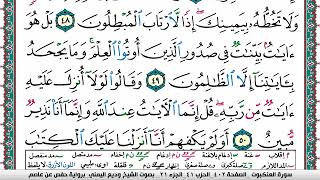 وَلَا تَخُطُّهُۥ بِيَمِينِكَ ۖ إِذًا لَّٱرْتَابَ ٱلْمُبْطِلُونَ ٤٨ بَلْ هُوَ
ءَايَٰتٌۢ بَيِّنَٰتٌ فِى صُدُورِ ٱلَّذِينَ أُوتُوا۟ ٱلْعِلْمَ ۚ وَمَا يَجْحَدُ
بِـَٔايَٰتِنَآ إِلَّا ٱلظَّٰلِمُونَ ٤٩ وَقَالُوا۟ لَوْلَآ أُنزِلَ عَلَيْهِ
ءَايَٰتٌ مِّن رَّبِّهِۦ ۖ قُلْ إِنَّمَا ٱلْءَايَٰتُ عِندَ ٱللَّهِ وَإِنَّمَآ أَنَا۠ نَذِيرٌ
مُّبِينٌ ٥٠ أَوَلَمْ يَكْفِهِمْ أَنَّآ أَنزَلْنَا عَلَيْكَ
سورة العنكبوت الصفحة ٤٠٢ الحزب ٤١ الجزء ٢١ بصوت الشيخ وديع اليمني برواية حفص عن عاصم